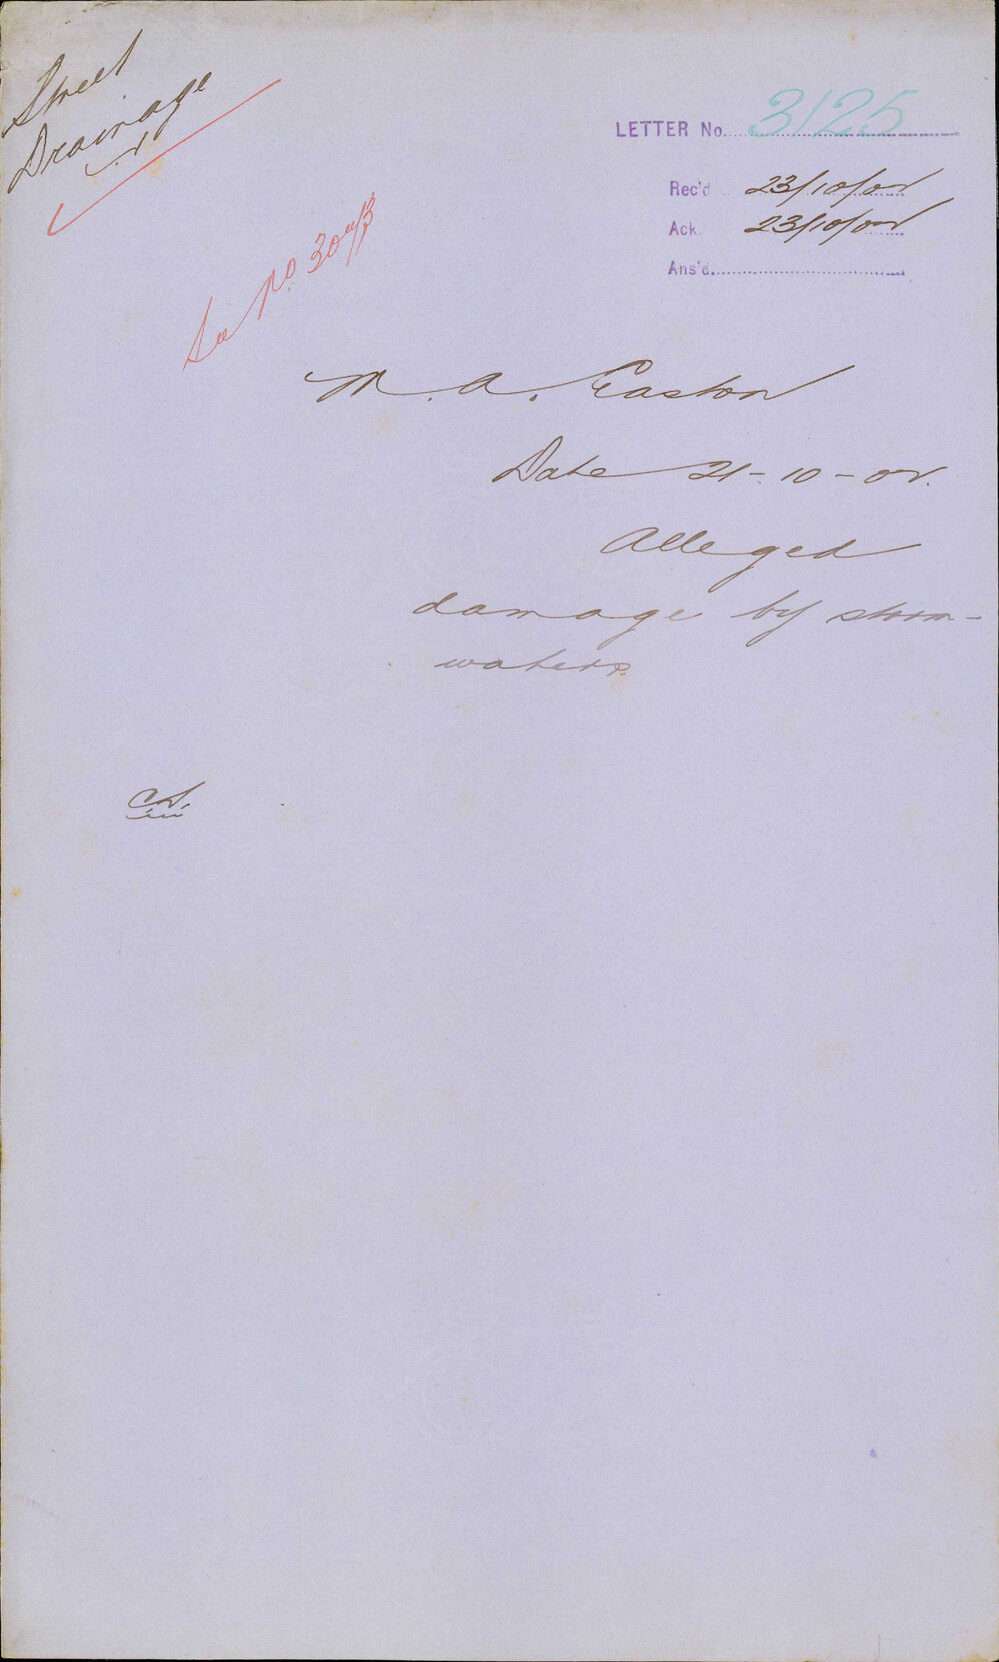 Street
Drainage
LETTER No. 3125
Rec'd 23/10/02
Ack. 23/10/02
Ans'd.
See No.
M. A. Easton
Date 21-10-02.
Alleged
damage by storm-
waters.